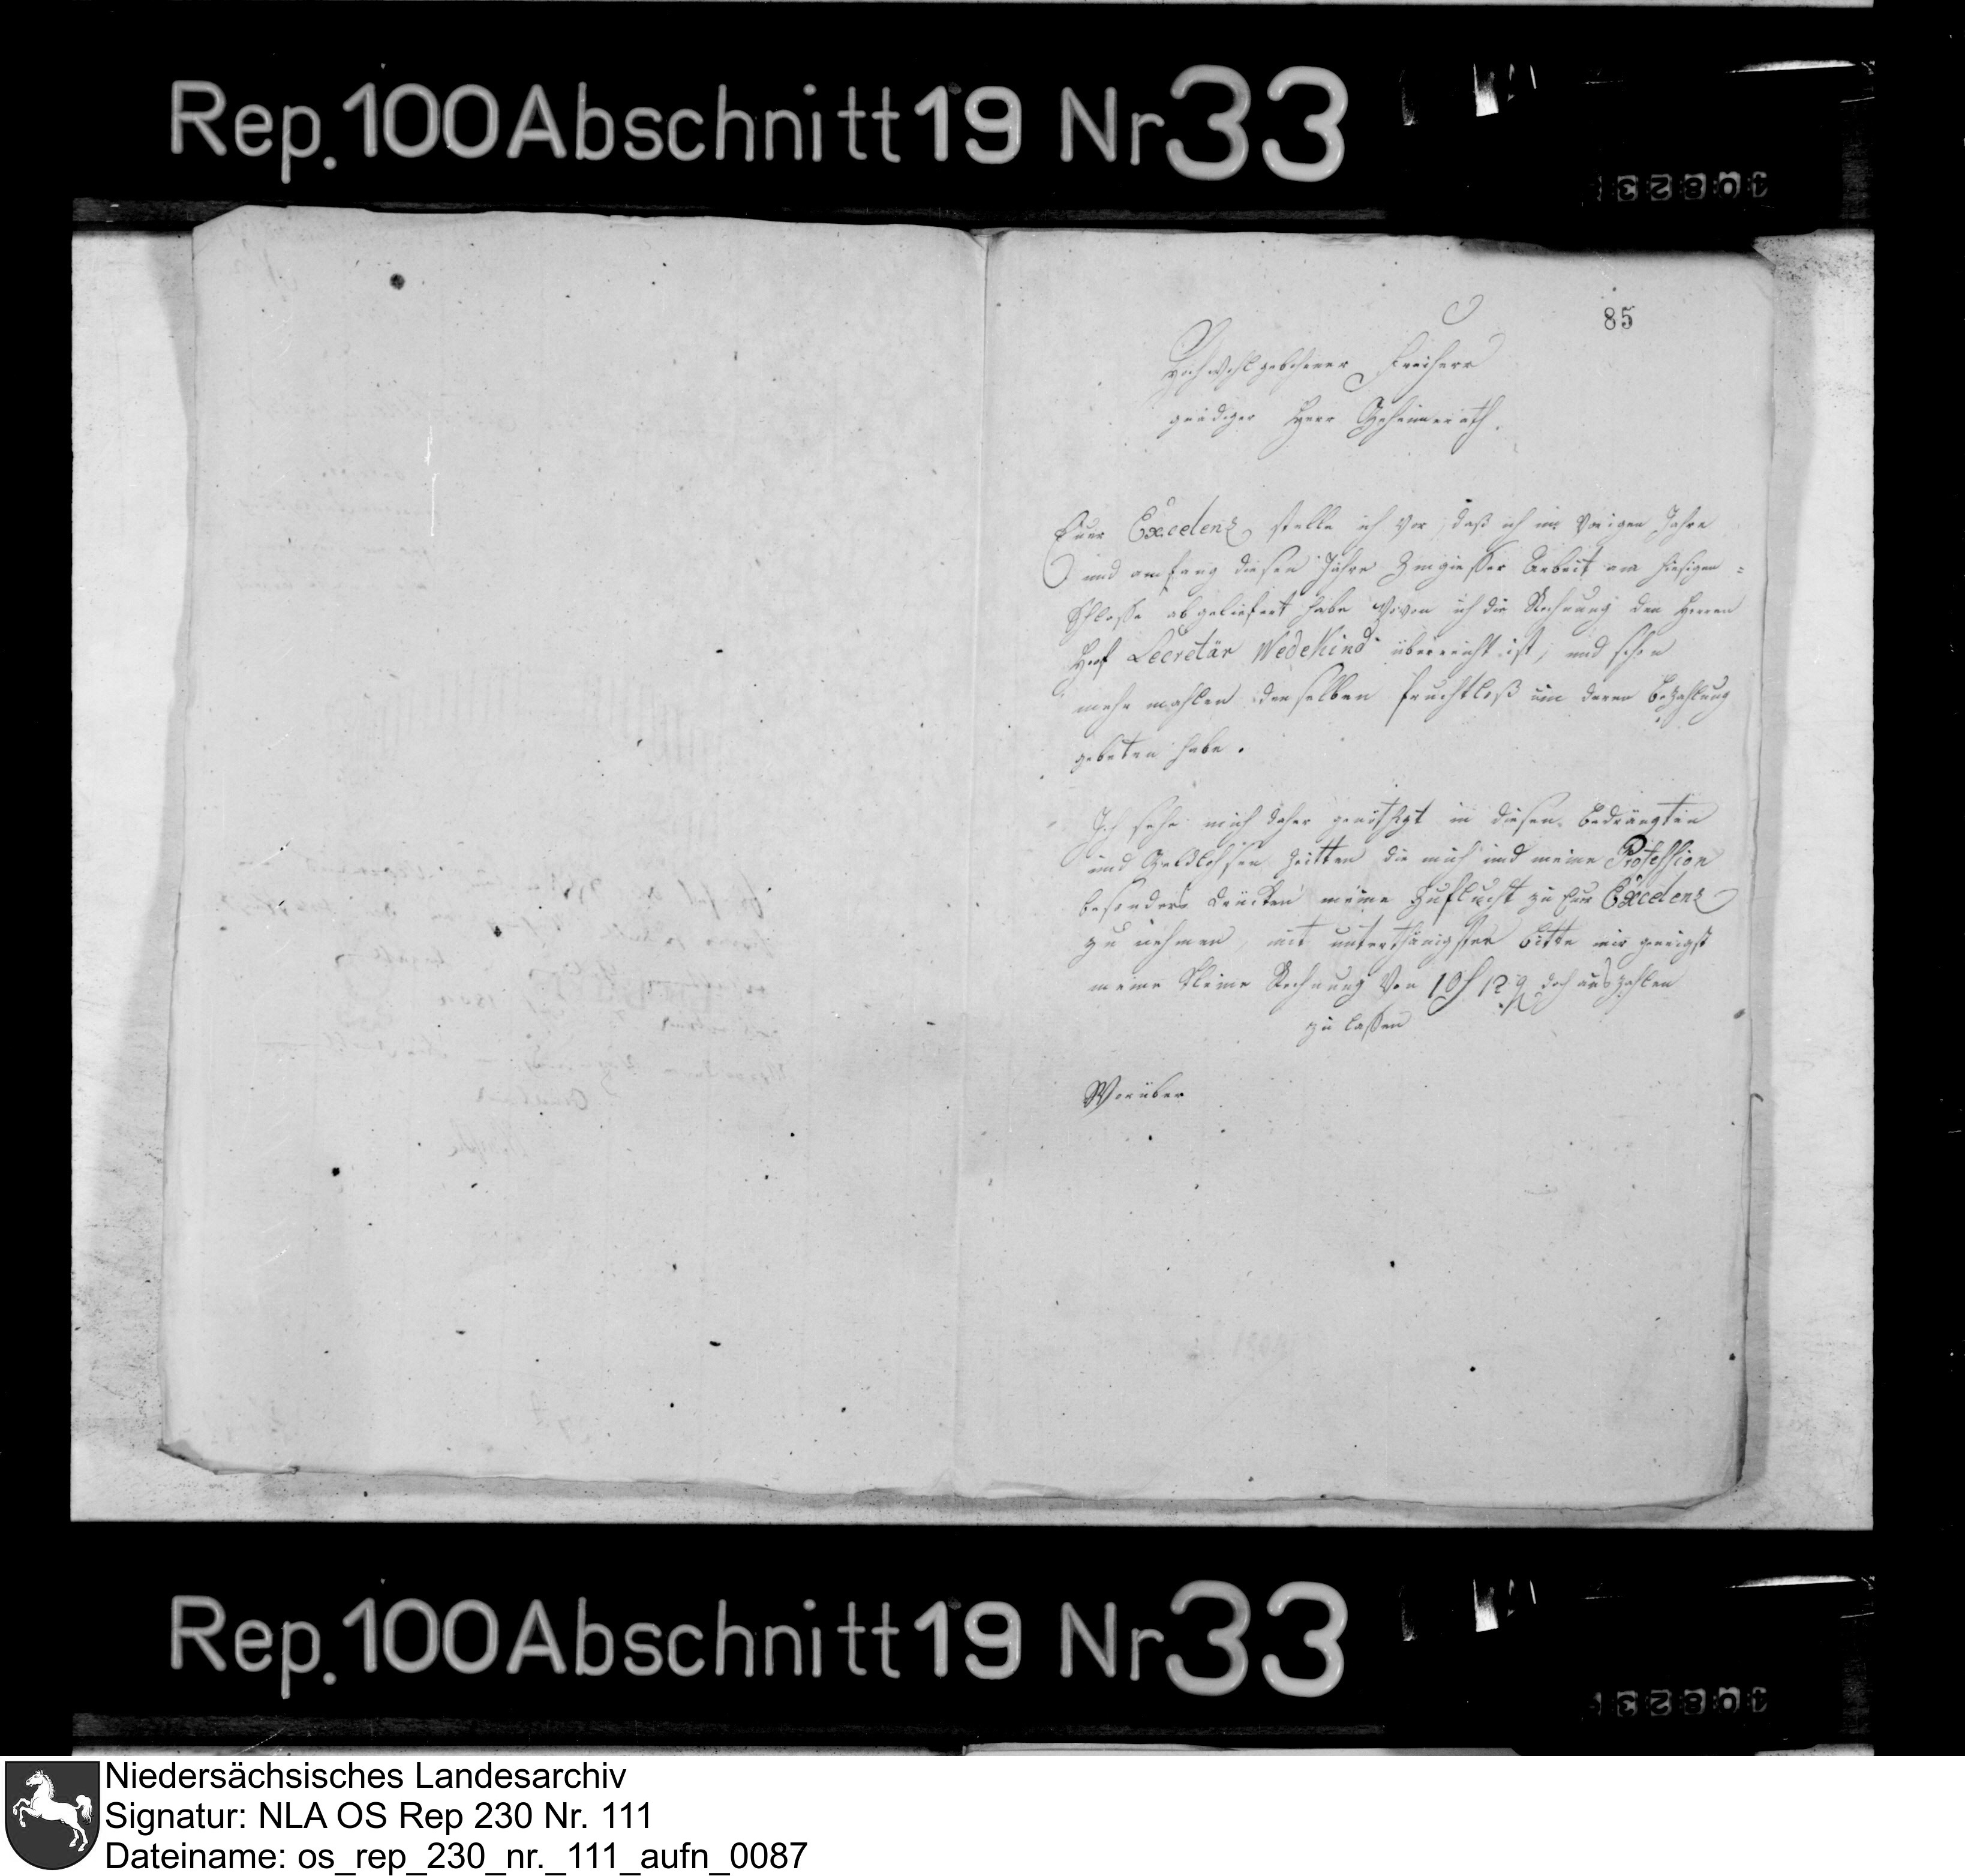 Rep. 100 Abschnitt 19 Nr 33
85
Hochwohlgebohrner Freiherr
gnädiger Herr Geheimerath.
Euer Excelenz stelle ich vor, daß ich im Vorigen Jahre
und amfang diesen Jahre Zingiesser Arbeit am hiesigen =
Schlosse abgeliefert habe Wovon ich die Rechnung den Herren
Hof Secretär Wedekind überreicht ist, und schon
mehr mahlen denselben fruchtloß um deren Bezahlung
gebeten habe.
Ich sehe mich daher genöthigt in diesen bedrängten
und Geldlohsen Zeitten die mich und meine Profession
besonders drücken meine Zuflucht zu Euer Excelenz
zu nehmen, mit unterthänigster bitte mir geneigst
meine Kleine Rechnung Von doch auszahlen
zu lassen
Worüber
Rep. 100 Abschnitt 19 Nr 33
Niedersächsisches Landesarchiv
Signatur: NLA OS Rep 230 Nr. 111
Dateiname: os_rep_230_nr._111_aufn_0087